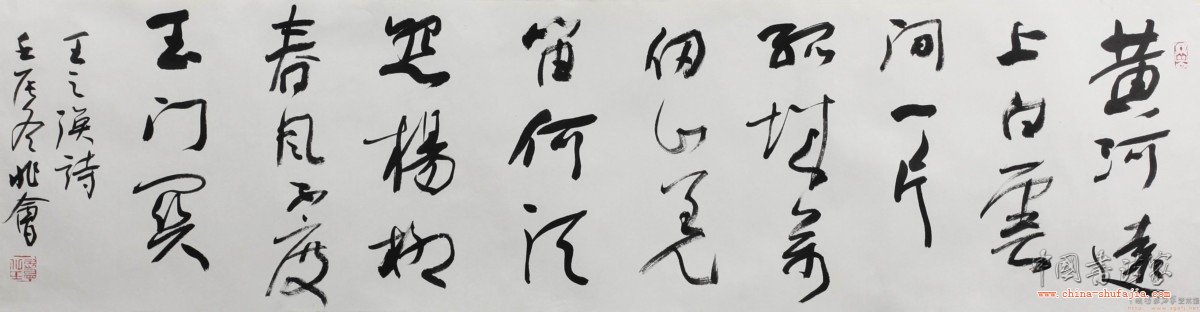 黄河遠
上白雲
间一片
孤城萬
仞山羌
笛何須
怨楊柳
春風不度
玉门関
王之渙詩
壬辰冬會
中國書法家
www.china-shufajia.com